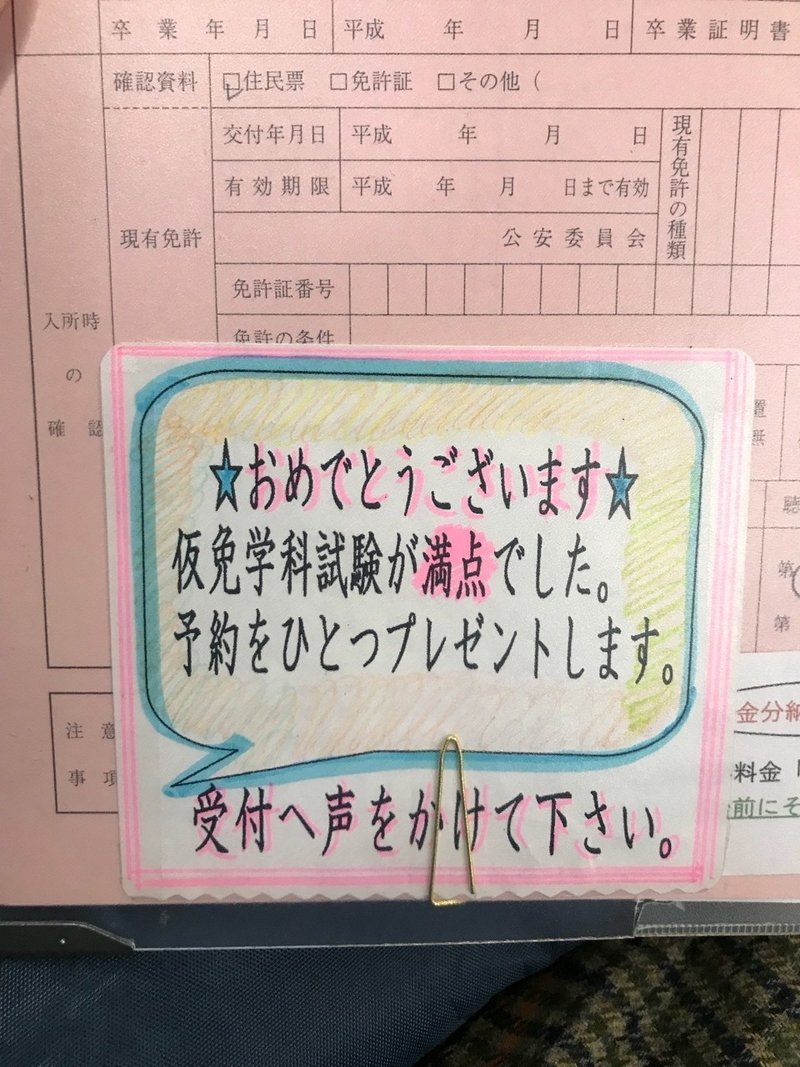 卒業年月日 平成 年 月 日 卒業証明書
確認資料 □住民票 □免許証 □その他(
交付年月日 平成 年 月 日
有効期限 平成 年 月 日まで有効
現有免許の種類
現有免許
公安委員会
免許証番号
免許の条件
入所時の確認
★おめでとうございます★
仮免学科試験が満点でした。
予約をひとつプレゼントします。
受付へ声をかけて下さい。
注意
事項
第
第
金分納
料金
前にそ